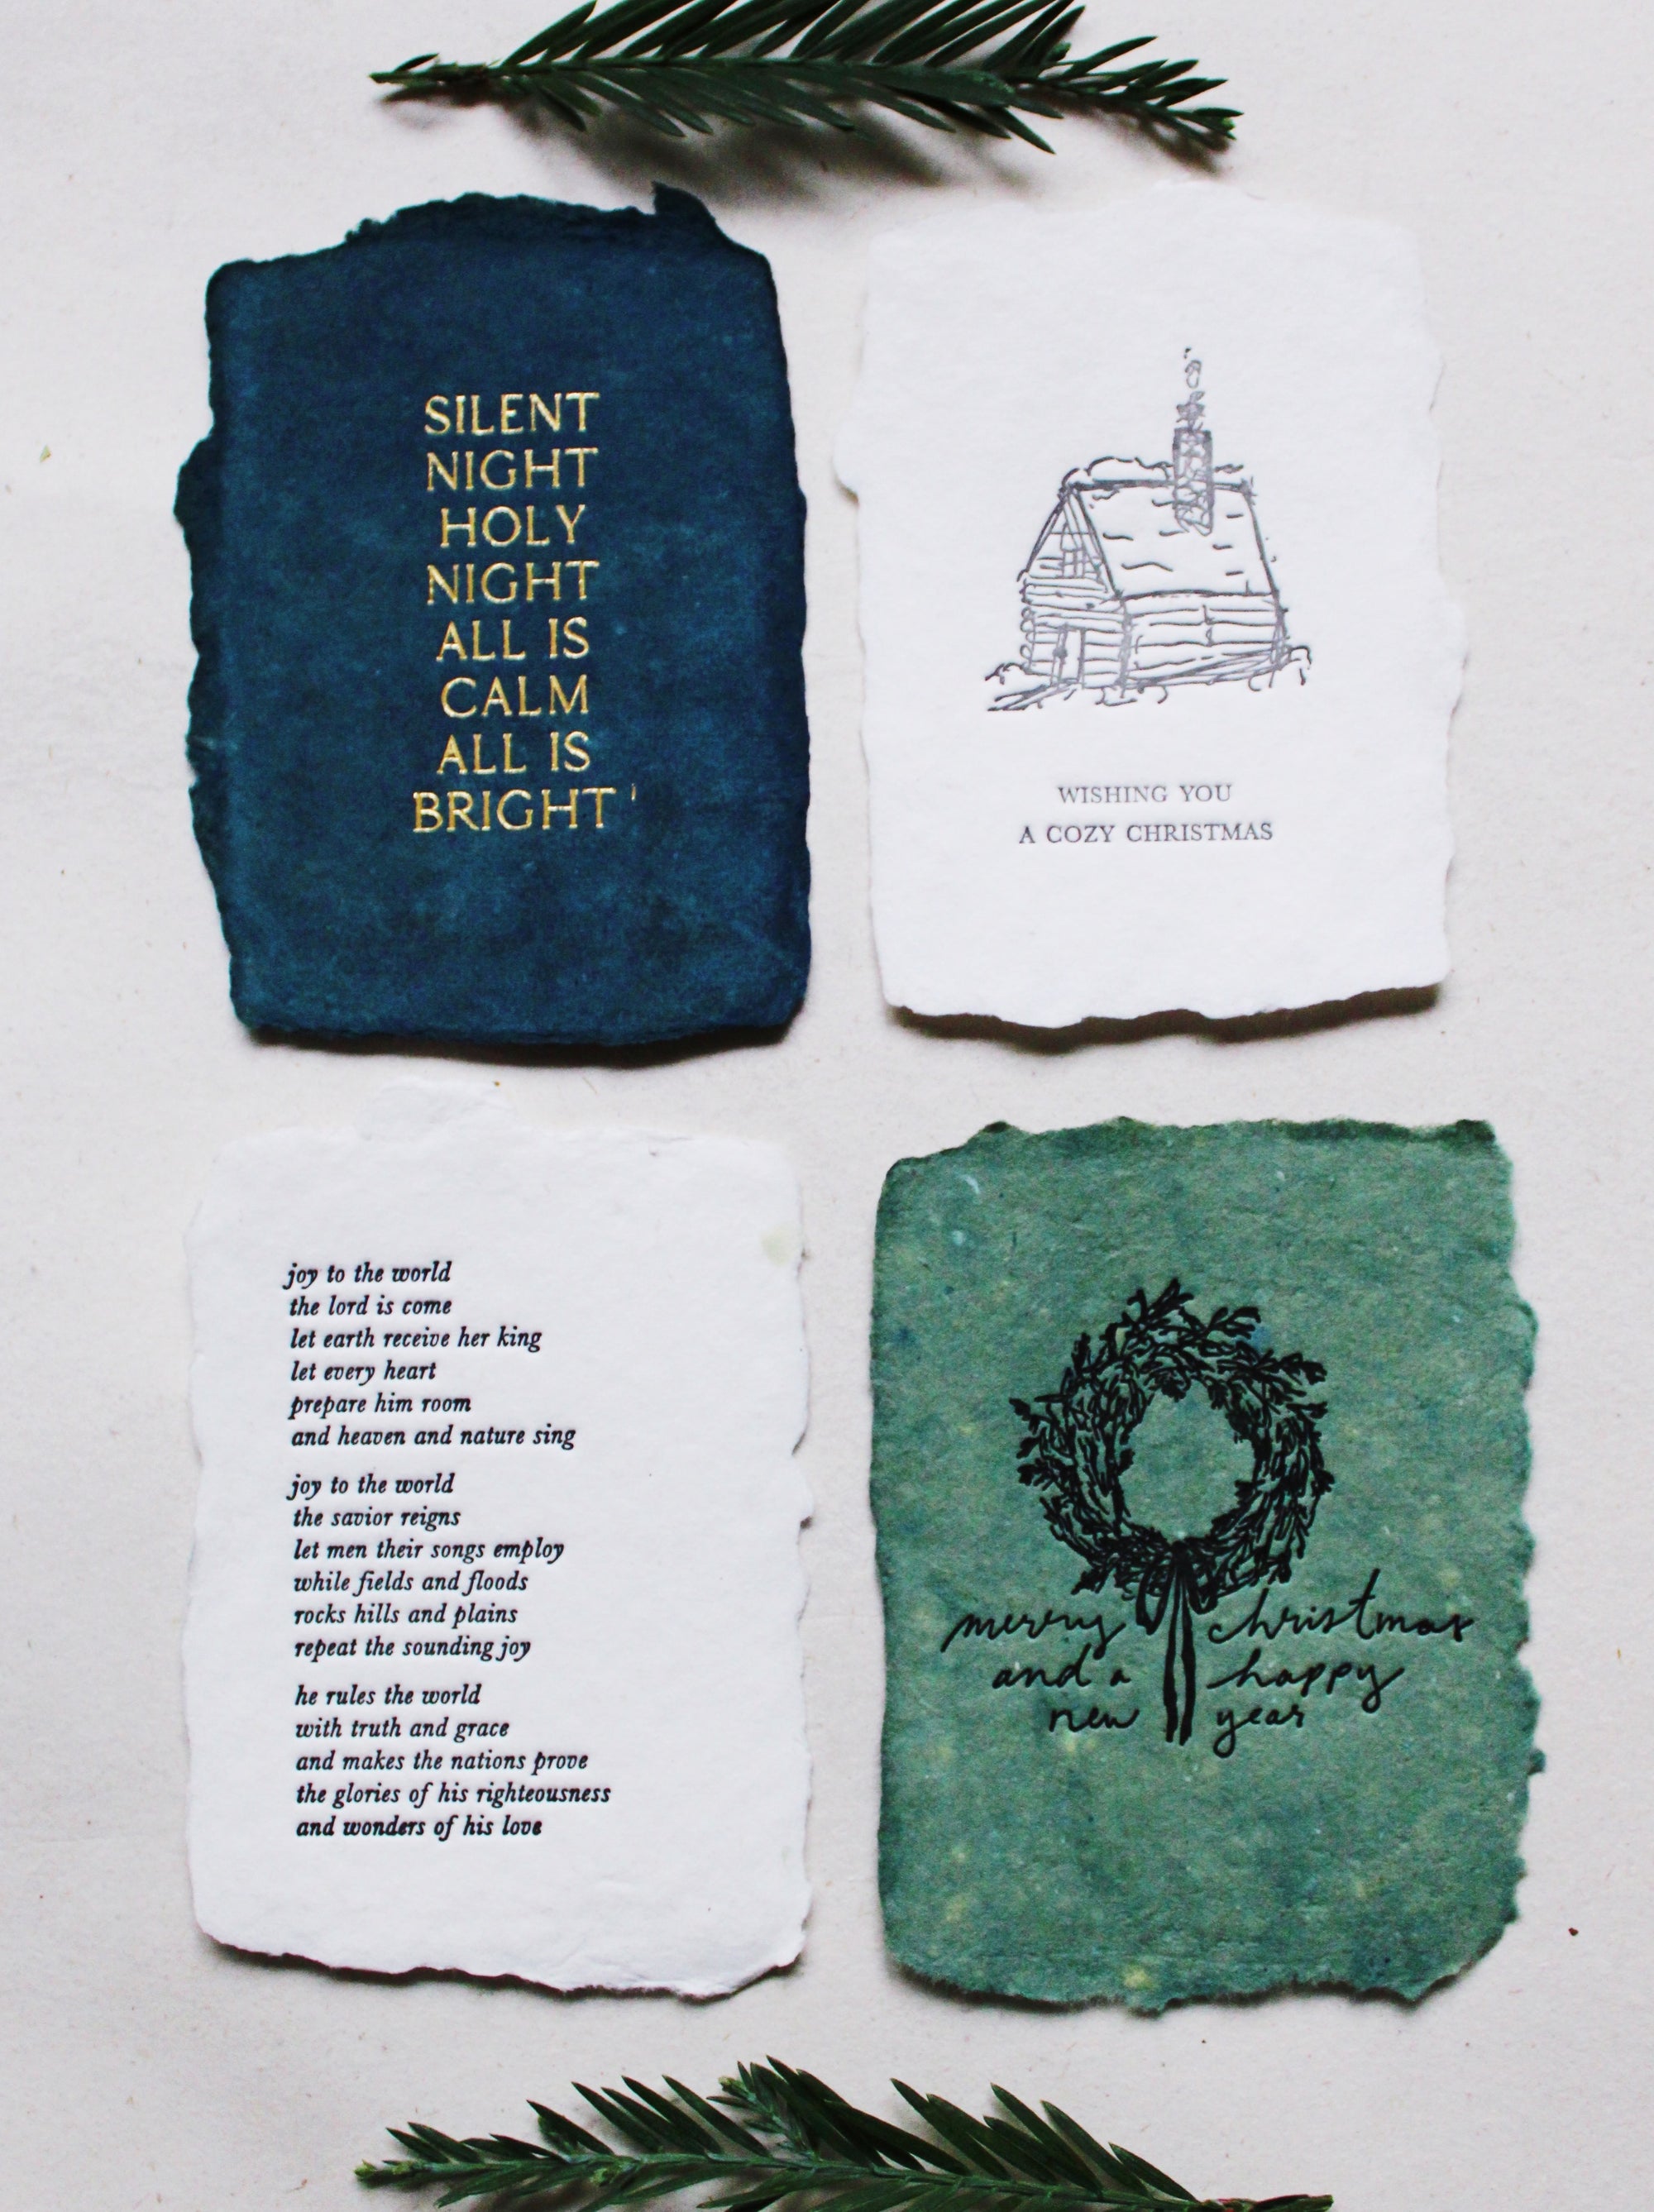 SILENT
NIGHT
HOLY
NIGHT
ALL IS
CALM
ALL IS
BRIGHT
WISHING YOU
A COZY CHRISTMAS
joy to the world
the lord is come
let earth receive her king
let every heart
prepare him room
and heaven and nature sing
joy to the world
the savior reigns
let men their songs employ
while fields and floods
rocks hills and plains
repeat the sounding joy
he rules the world
with truth and grace
and makes the nations prove
the glories of his righteousness
and wonders of his love
merry christmas
and a happy
new year